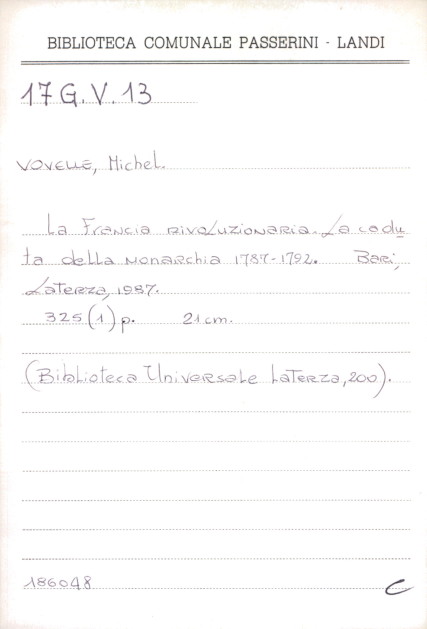 BIBLIOTECA COMUNALE PASSERINI - LANDI
17 G.V. 13
VOVELLE, Michel.
La Francia rivoluzionaria. La cadu
ta della monarchia 1787-1792. Bari,
Laterza, 1987.
325 (1) p. 21 cm.
(Biblioteca Universale Laterza, 200).
186048 C